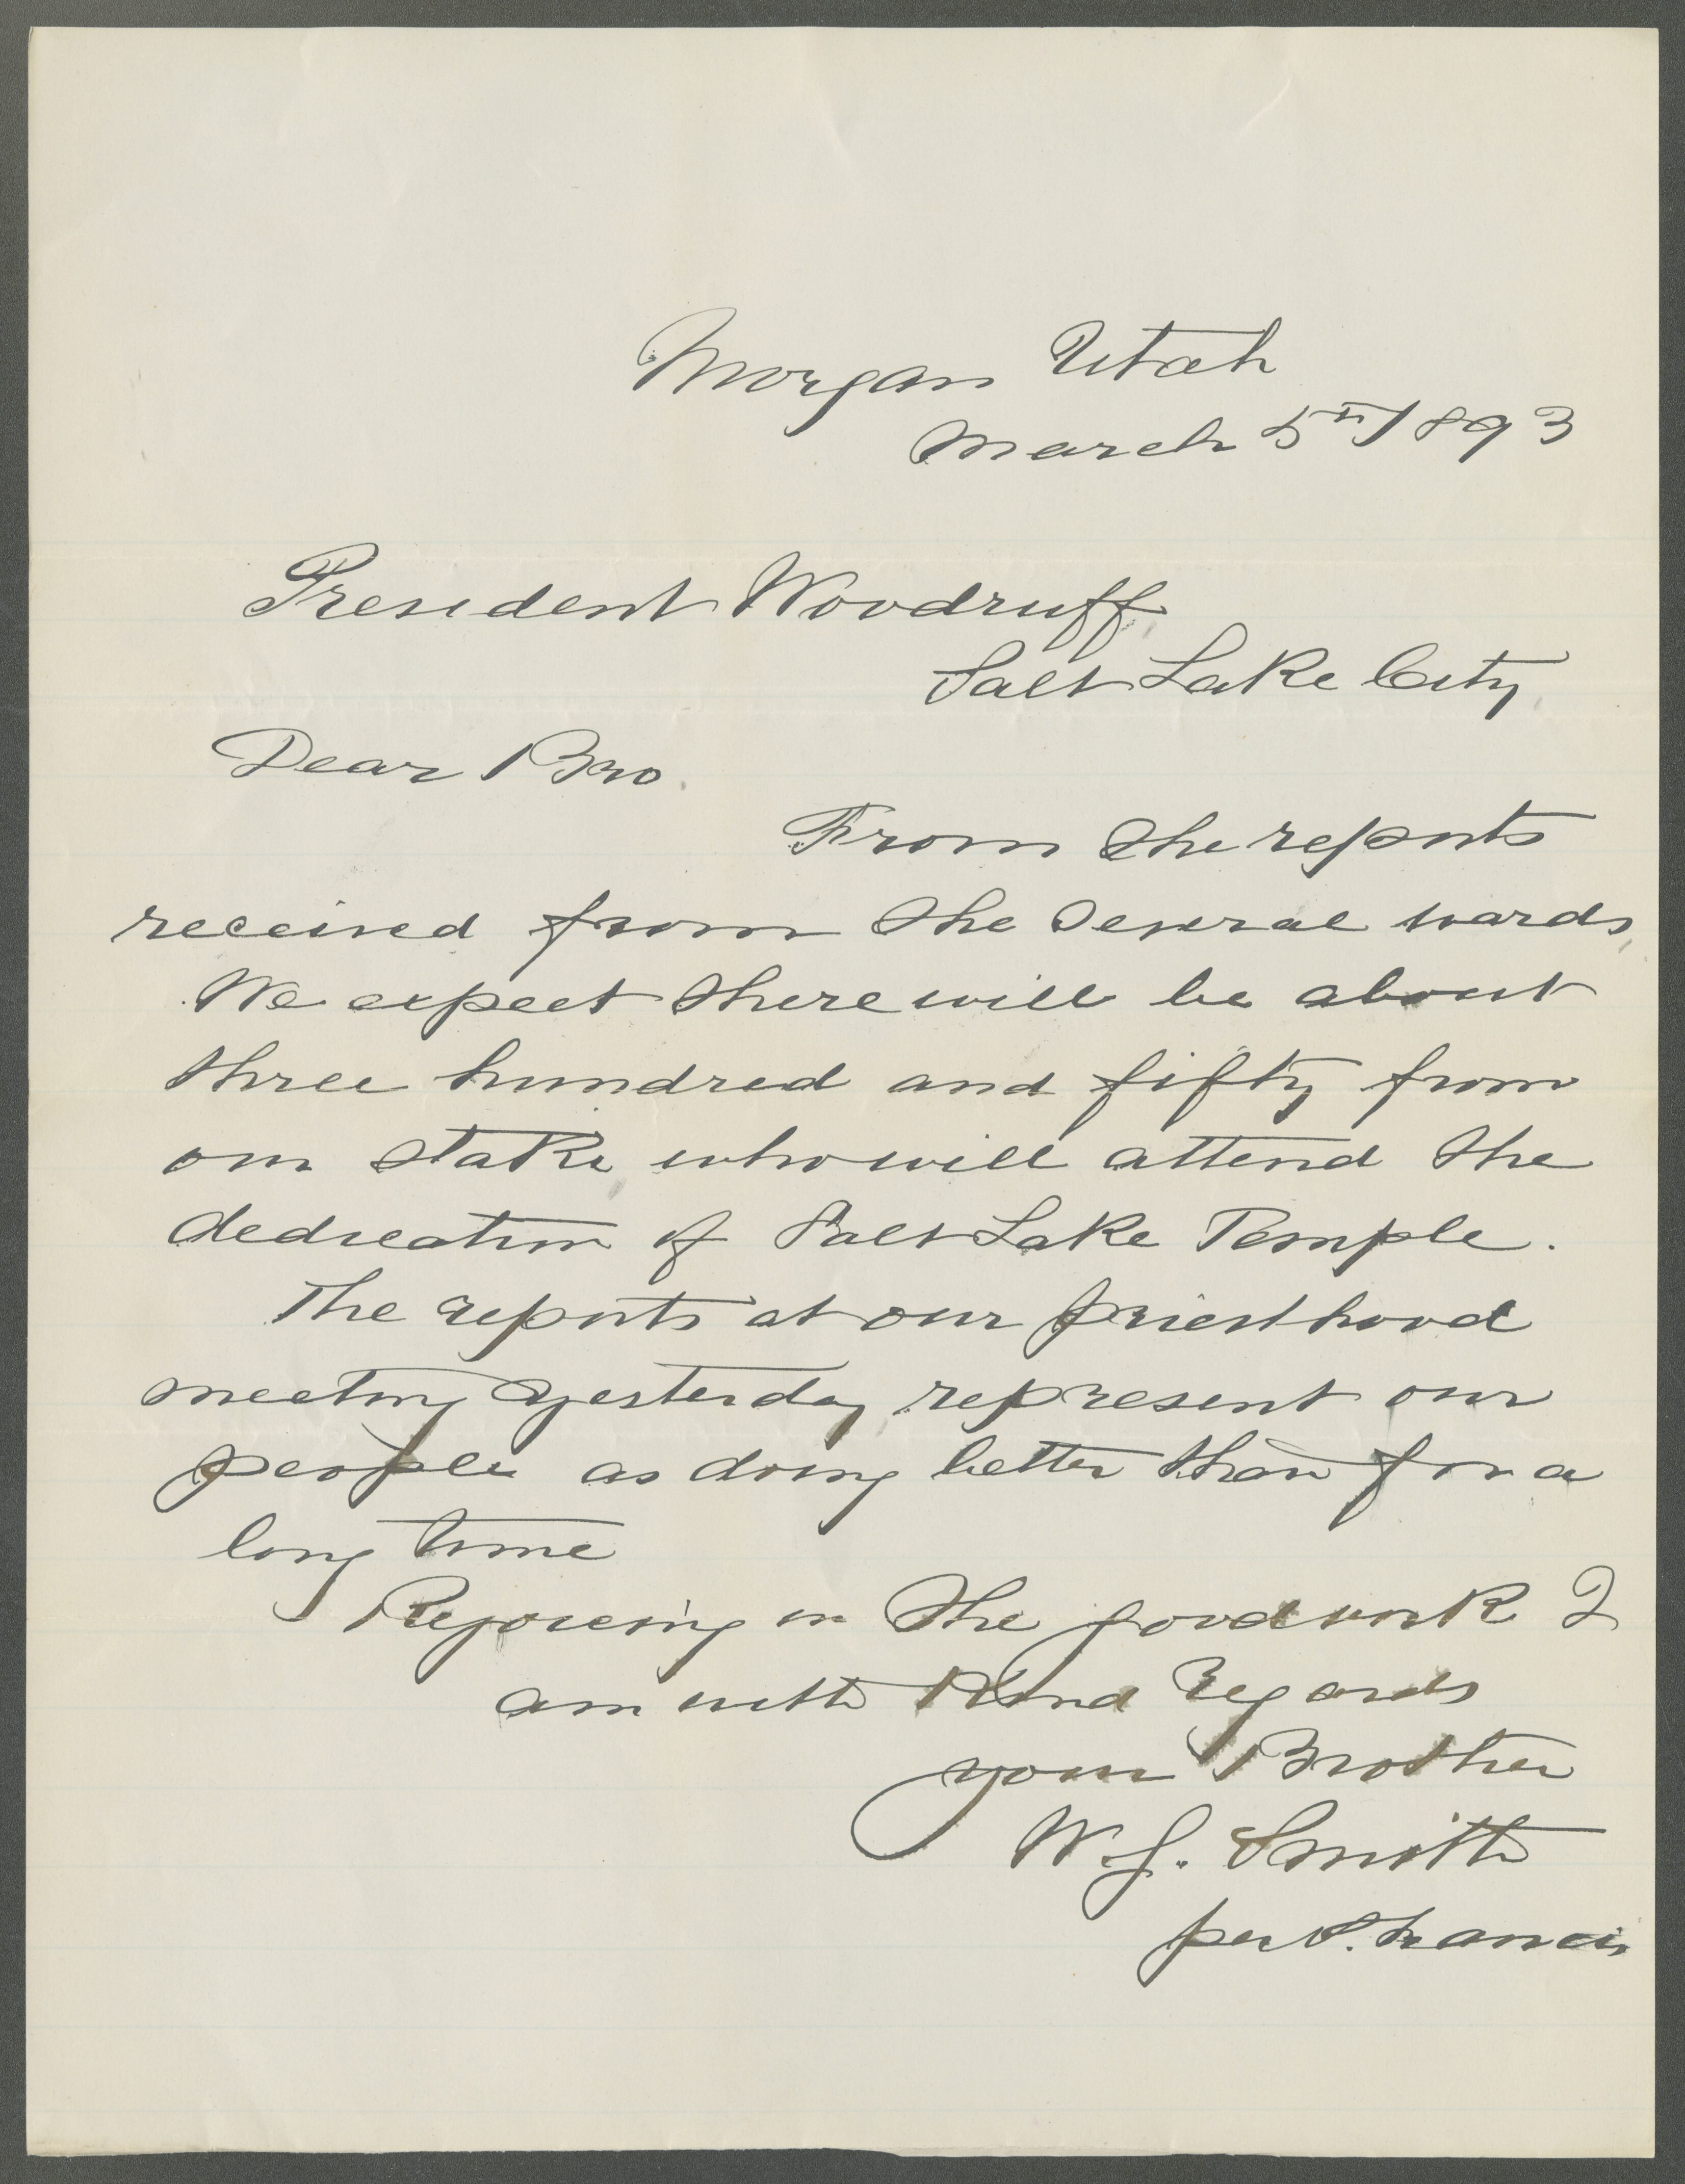 Morgan Utah
March 5th 1893
President Woodruff
Salt Lake City
Dear Bro.
From the reports
received from the several wards,
We expect there will be about
three hundred and fifty from
our stake who will attend the
dedication of Salt Lake Temple.
The reports at our priesthood
meeting yesterday represent our
people as doing better than for a
long time
Rejoicing in the good work I
am with Kind Regards
your Brother
W. G. Smith
per S. Francis